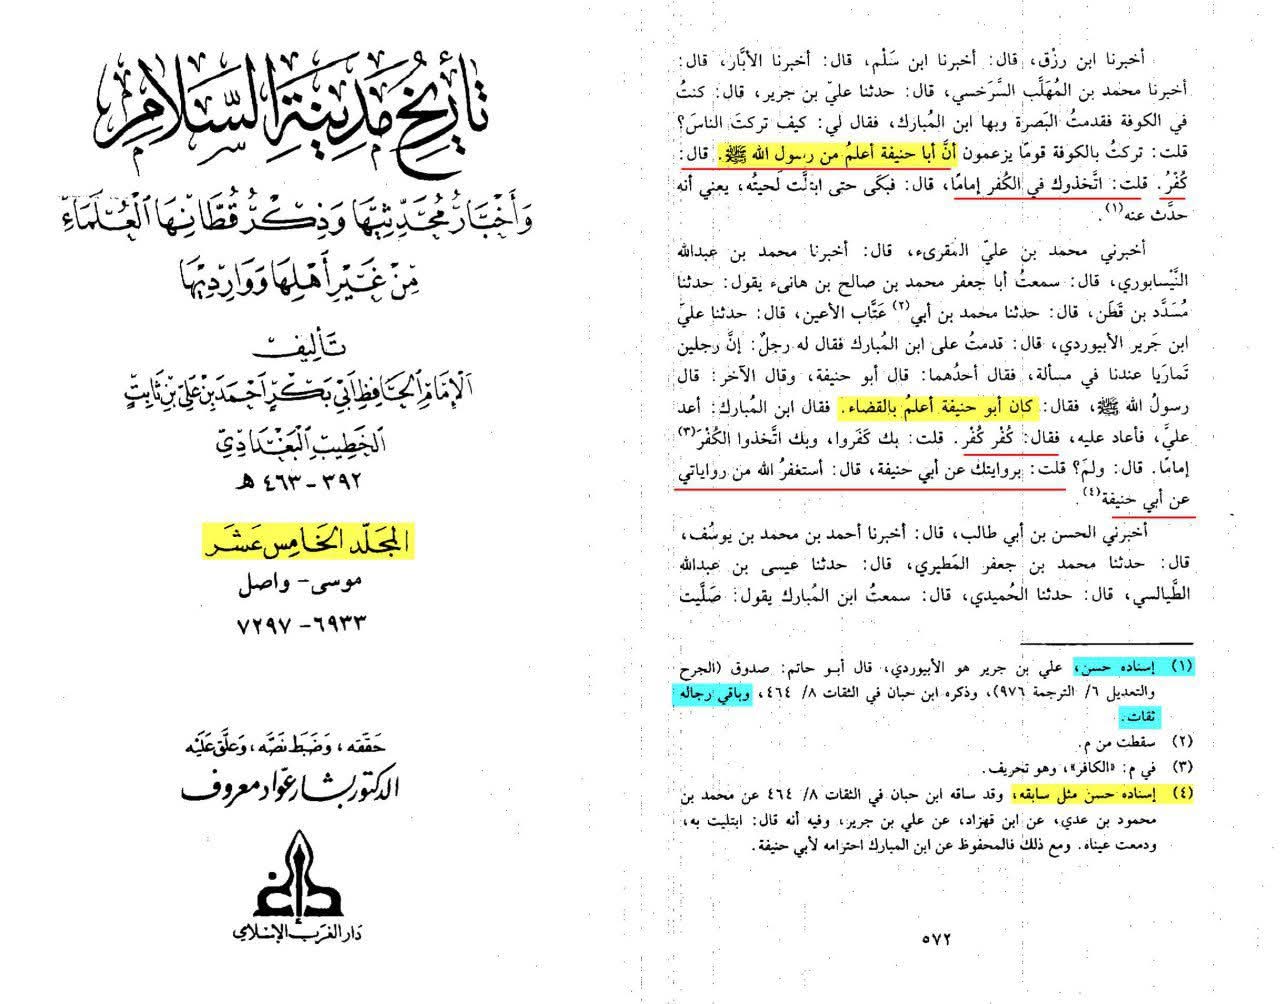 تأريخ مدينة السلام
وأخبار محدثيها وذكر قطانها العلماء
من غير أهلها ووارديها
تأليف
الإمام الحافظ أبي بكر أحمد بن علي بن ثابت
الخطيب البغدادي
٣٩٢ - ٤٦٣ هـ
المجلد الخامس عشر
موسى - واصل
٦٩٣٣ - ٧٢٩٧
حققه، وضبط نصه، وعلق عليه
الدكتور بشار عواد معروف
دار الغرب الإسلامي
أخبرنا ابن رزْق، قال: أخبرنا ابن سَلْم، قال: أخبرنا الأبَّار، قال:
أخبرنا محمد بن المُهَلَّب السَّرَخسي، قال: حدثنا عليّ بن جرير، قال: كنتُ
في الكوفة فقدمتُ البَصرة وبها ابن المُبارك، فقال لي: كيف تركتَ الناسَ؟
قلت: تركتُ بالكوفة قومًا يزعمون أنَّ أبا حنيفة أعلمُ من رسول الله ﷺ. قال:
كُفْرُ. قلت: اتَّخذوك في الكُفر إمامًا، قال: فبكَى حتى ابتلَّت لحيتُه، يعني أنه
حدَّث عنه(١).
أخبرني محمد بن عليّ المقرىء، قال: أخبرنا محمد بن عبدالله
النَّيْسابوري، قال: سمعتُ أبا جعفر محمد بن صالح بن هانىء يقول: حدثنا
مُسَدَّد بن قَطَن، قال: حدثنا محمد بن أبي(٢) عَتَّاب الأعين، قال: حدثنا عليّ
ابن جَرير الأبيوردي، قال: قدمتُ على ابن المُبارك فقال له رجلٌ: إنَّ رجلين
تَمارَيا عندنا في مسألة، فقال أحدُهما: قال أبو حنيفة، وقال الآخر: قال
رسولُ الله ﷺ، فقال: كان أبو حنيفة أعلمُ بالقضاء. فقال ابن المُبارك: أعد
عليَّ، فأعاد عليه، فقال: كُفْر كُفْر. قلت: بك كَفَروا، وبك اتَّخذوا الكُفْرَ(٣)
إمامًا. قال: ولمَ؟ قلت: بروايتك عن أبي حنيفة، قال: أستغفرُ الله من رواياتي
عن أبي حنيفة(٤).
أخبرني الحسن بن أبي طالب، قال: أخبرنا أحمد بن محمد بن يوسُف،
قال: حدثنا محمد بن جعفر المَطيري، قال: حدثنا عيسى بن عبدالله
الطَّيالسي، قال: حدثنا الحُميدي، قال: سمعتُ ابن المُبارك يقول: صَلَّيت
(١) إسناده حسن، علي بن جرير هو الأبيوردي، قال أبو حاتم: صدوق (الجرح
والتعديل ٦/ الترجمة ٩٧٦)، وذكره ابن حبان في الثقات ٨/ ٤٦٤، وباقي رجاله
ثقات.
(٢) سقطت من م.
(٣) في م: «الكافر»، وهو تحريف.
(٤) إسناده حسن مثل سابقه، وقد ساقه ابن حبان في الثقات ٨/ ٤٦٤ عن محمد بن
محمود بن عدي، عن ابن قهزاد، عن علي بن جرير، وفيه أنه قال: ابتليت به،
ودمعت عيناه. ومع ذلك فالمحفوظ عن ابن المبارك احترامه لأبي حنيفة.
٥٧٢